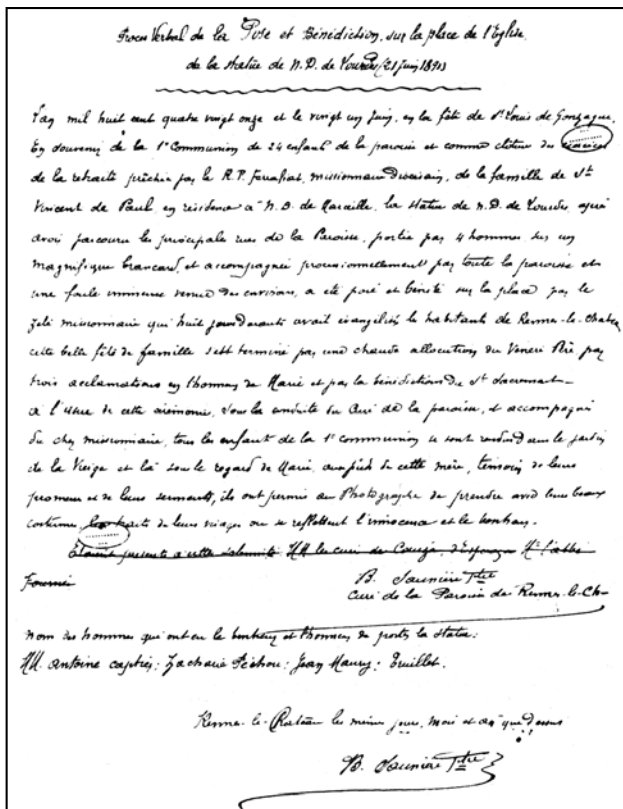 Proces Verbal de la Pose et Bénédiction, sur la place de l'Eglise,
de la statue de N. D. de Lourdes (21 juin 1891)
L'an mil huit cent quatre vingt onze et le vingt un juin, en la fête de St Louis de Gonzague,
En souvenir de la 1e Communion de 24 enfant de la paroisse et comme clôture des exercices
de la retraite prêchée par le R. P. Ferrafiat, missionnaire diocésain, de la famille de St
Vincent de Paul en résidence à N. D. de Marceille, la statue de N. D. de Lourdes, après
avoir parcouru les principales rues de la Paroisse, portée par 4 hommes sur un
magnifique brancard, et accompagnée processionnellement par toute la paroisse et
une foule immense venue des environs, a été posé et bénite sur la place par le
zélé missionnaire qui huit jours durants avait évangélisé les habitants de Rennes-le-Chateau
cette belle fête de famille s'est terminé par une chaude allocution du Vénéré Père, par
trois acclamations en l'honneur de Marie et par la bénédiction du St Sacrement
à l'issue de cette cérémonie, sous la conduite du Curé de la paroisse, et accompagné
du cher missionnaire, tous les enfant de la 1e communion se sont rendus dans le jardin
de la Vierge et là sous le regard de Marie, aux pieds de cette mère, témoin de leurs
promesses et de leurs serments, ils ont permis au Photographe de prendre avec leurs beaux
costumes, les traits de leurs visages ou se reflettent l'innocence et le bonheur.
Etaient présents a cette solemnité MM les curé de Couiza, d'Esperaza Mr l'abbé
B. Saunière Ptre
Curé de la Paroisse de Rennes-le-Ch
Nom des hommes qui ont eu le bonheur et l'honneur de porter la statue:
MM. Antoine Captier; Zacharie Péchou; Jean Maury; Truillet.
Rennes-le-Chateau les mêmes jour, mois et an que dessus
B. Saunière Ptre